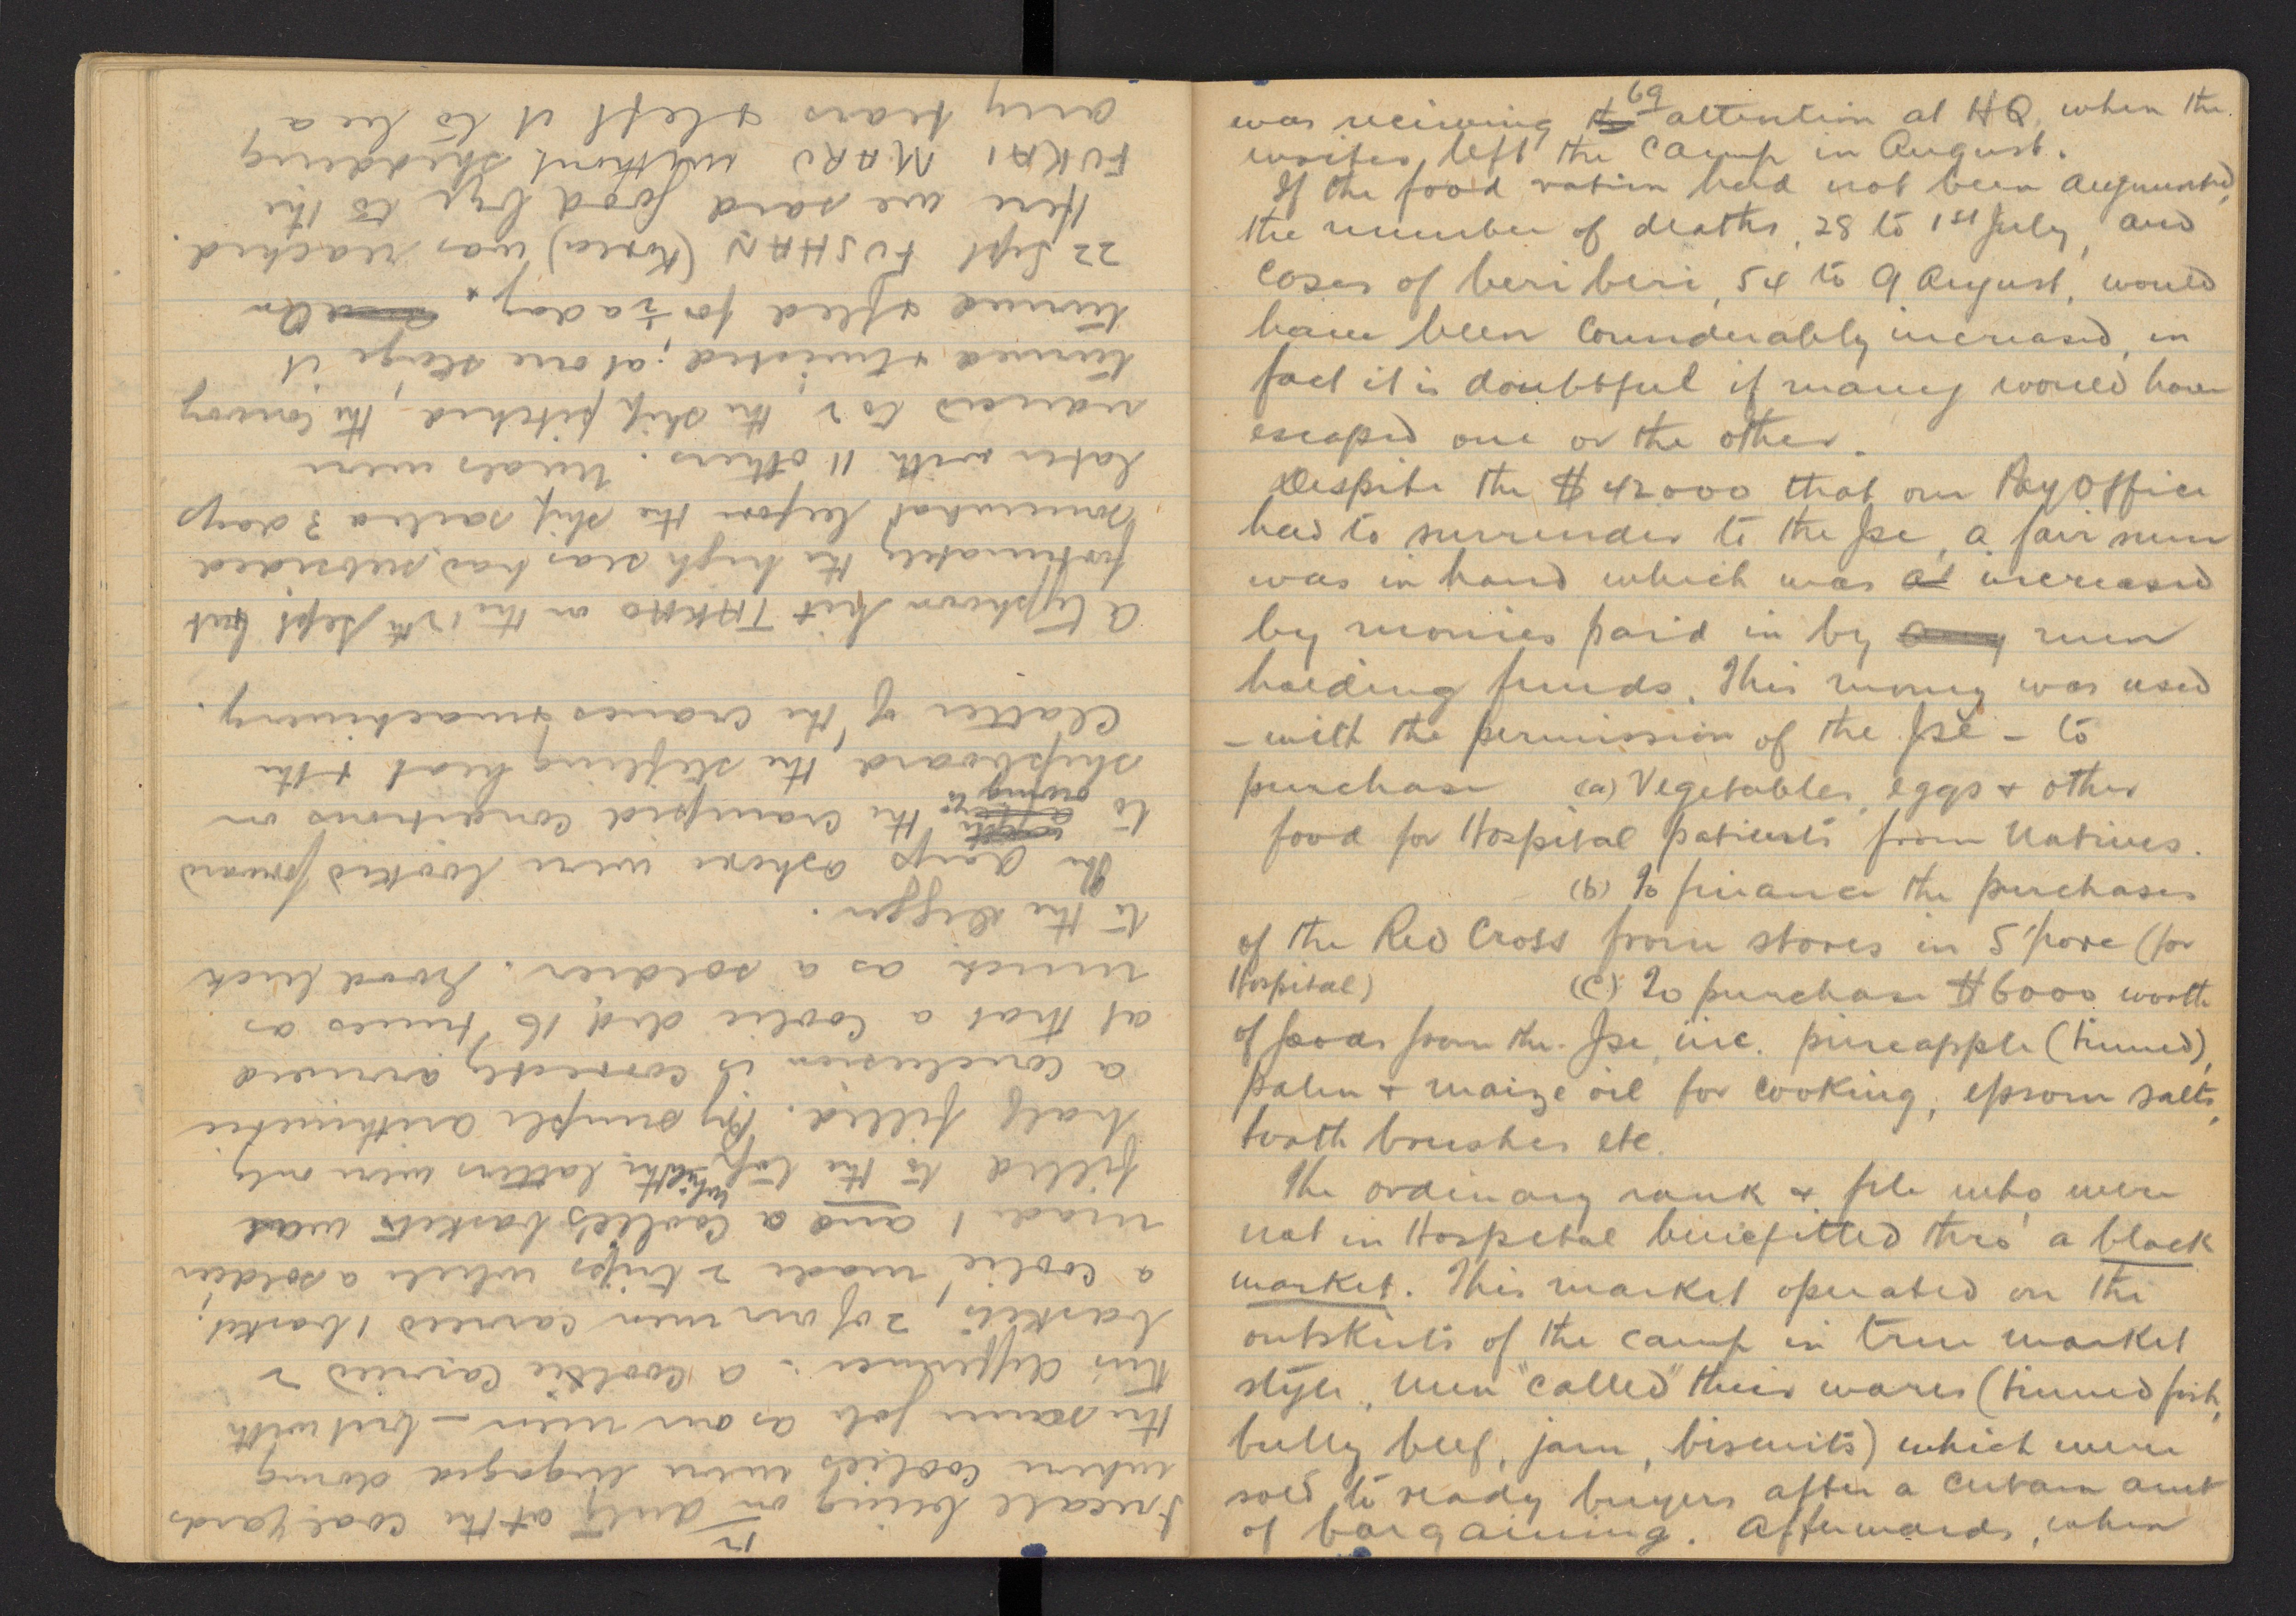 12
I recall being on duty at the coal yards
where coolies were engaged doing
the same job as our men – but with
this difference :- a coolie carried 2
baskets, 2 of our men carried 1 basket;
a coolie made 2 trips while a soldier
made 1 and a coolie's baskets was
filled to the top while the latters were only
half filled. By simple arithmetic
a conclusion is correctly arrived
at that a coolie did 16 times as
much as a soldier. Good luck
to the digger.
The days ashore were looked forward
to owing to the cramped conditions on
shipboard, the stifling heat & the
clatter of the cranes & machinery.
A typhoon hit TAKAO on the 12th Sept but
fortunately the high seas had subsided
somewhat before the ship sailed 3 days
later with 11 others. Meals were
reduced to 2, the ship pitched, the convoy
turned & twisted; at one stage it
turned & fled for ½ a day. On
22 Sept FUSHAN (Korea) was reached.
Here we said good bye to the
FUKAI MARU without shedding
any tears & left it to be a
69
was receiving attention at HQ. when the
writer left the camp in August.
If the food ration had not been augmented,
the number of deaths, 28 to 1st July, and
cases of beri beri, 54 to 9 August, would
have been considerably increased, in
fact it is doubtful if many would have
escaped one or the other.
Despite the $42000 that our Pay Office
had to surrender to the Jse, a fair sum
was in hand which was increased
by monies paid in by men
holding funds. This money was used
– with the permission of the Jse – to
purchase (a) Vegetables, eggs & other
food for Hospital patients from Natives.
(b) To finance the purchases
of the Red Cross from stores in S'pore (for
Hospital) (c) To purchase $6000 worth
of foods from the Jse, inc. pineapple (tinned),
palm & maize oil for cooking, epsom salts,
tooth brushes etc.
The ordinary rank & file who were
not in Hospital benefitted thro' a black
market. This market operated on the
outskirts of the camp in true market
style, men "called" their wares (tinned fish,
bully beef, jam, biscuits) which were
sold to ready buyers after a certain amt
of bargaining. Afterwards, when